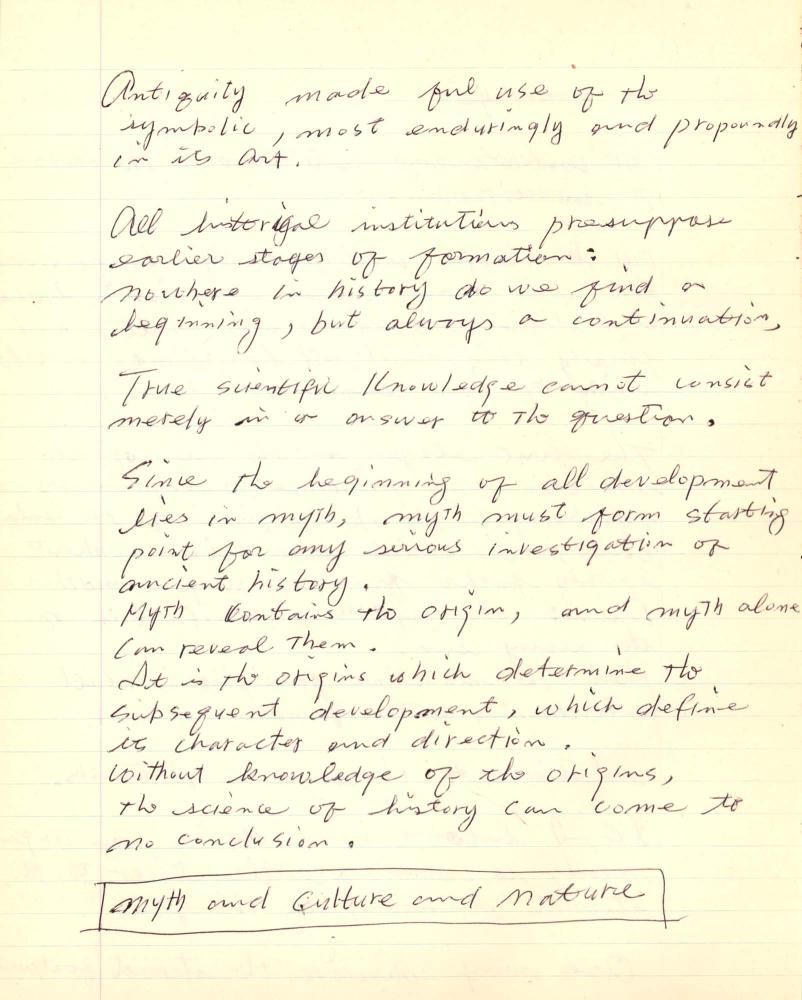 Antiquity made ful use of the
symbolic, most enduringly and propoundly
in its art.
All historical institutions presuppose
earlier stages of formation:
nowhere in history do we find a
beginning, but always a continuation,
True scientific Knowledge cannot consist
merely in a answer to the question.
Since the beginning of all development
lies in myth, myth must form starting
point for any serious investigation of
ancient history.
Myth contains the origin, and myth alone
can reveal them.
It is the origins which determine the
subsequent development, which define
its character and direction.
Without knowledge of the origins,
the science of history can come to
no conclusion.
Myth and Culture and Nature